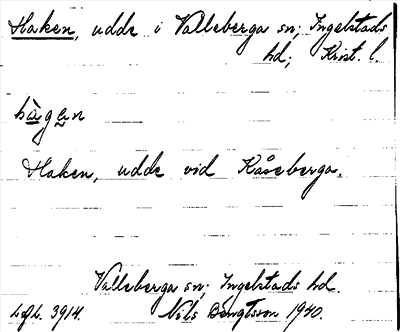 Haken, udde i Valleberga sn; Ingelstads
hd; Krist. l.
hàgen
Haken, udde vid Kåseberga.
Valleberga sn; Ingelstads hd.
3914. Nils Bengtsson 1940.